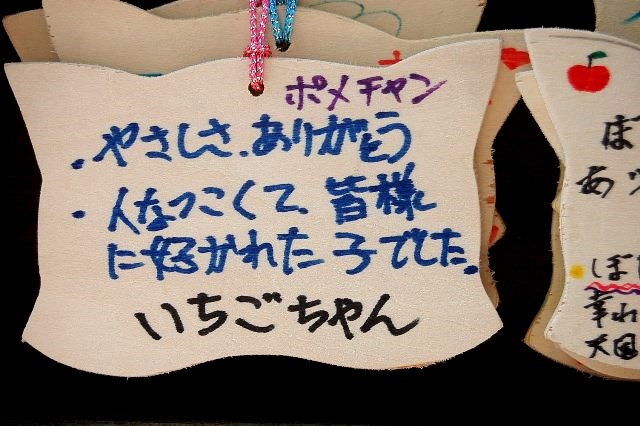 ポメチャン
・やさしさ、ありがとう
・人なつこくて、皆様
に好かれた子でした。
いちごちゃん
ぼ
あッ
ぼ
幸れ
天国